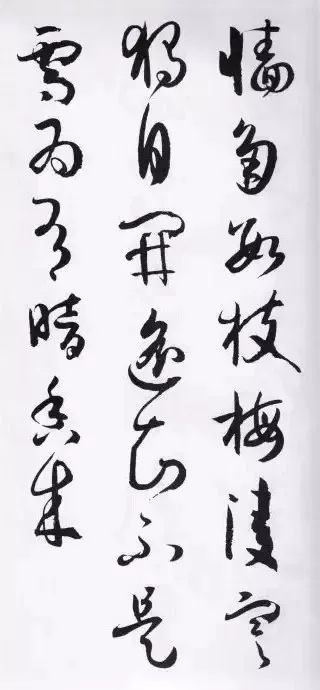 墙角數枝梅凌寒
獨自開遥知不是
雪為有暗香来